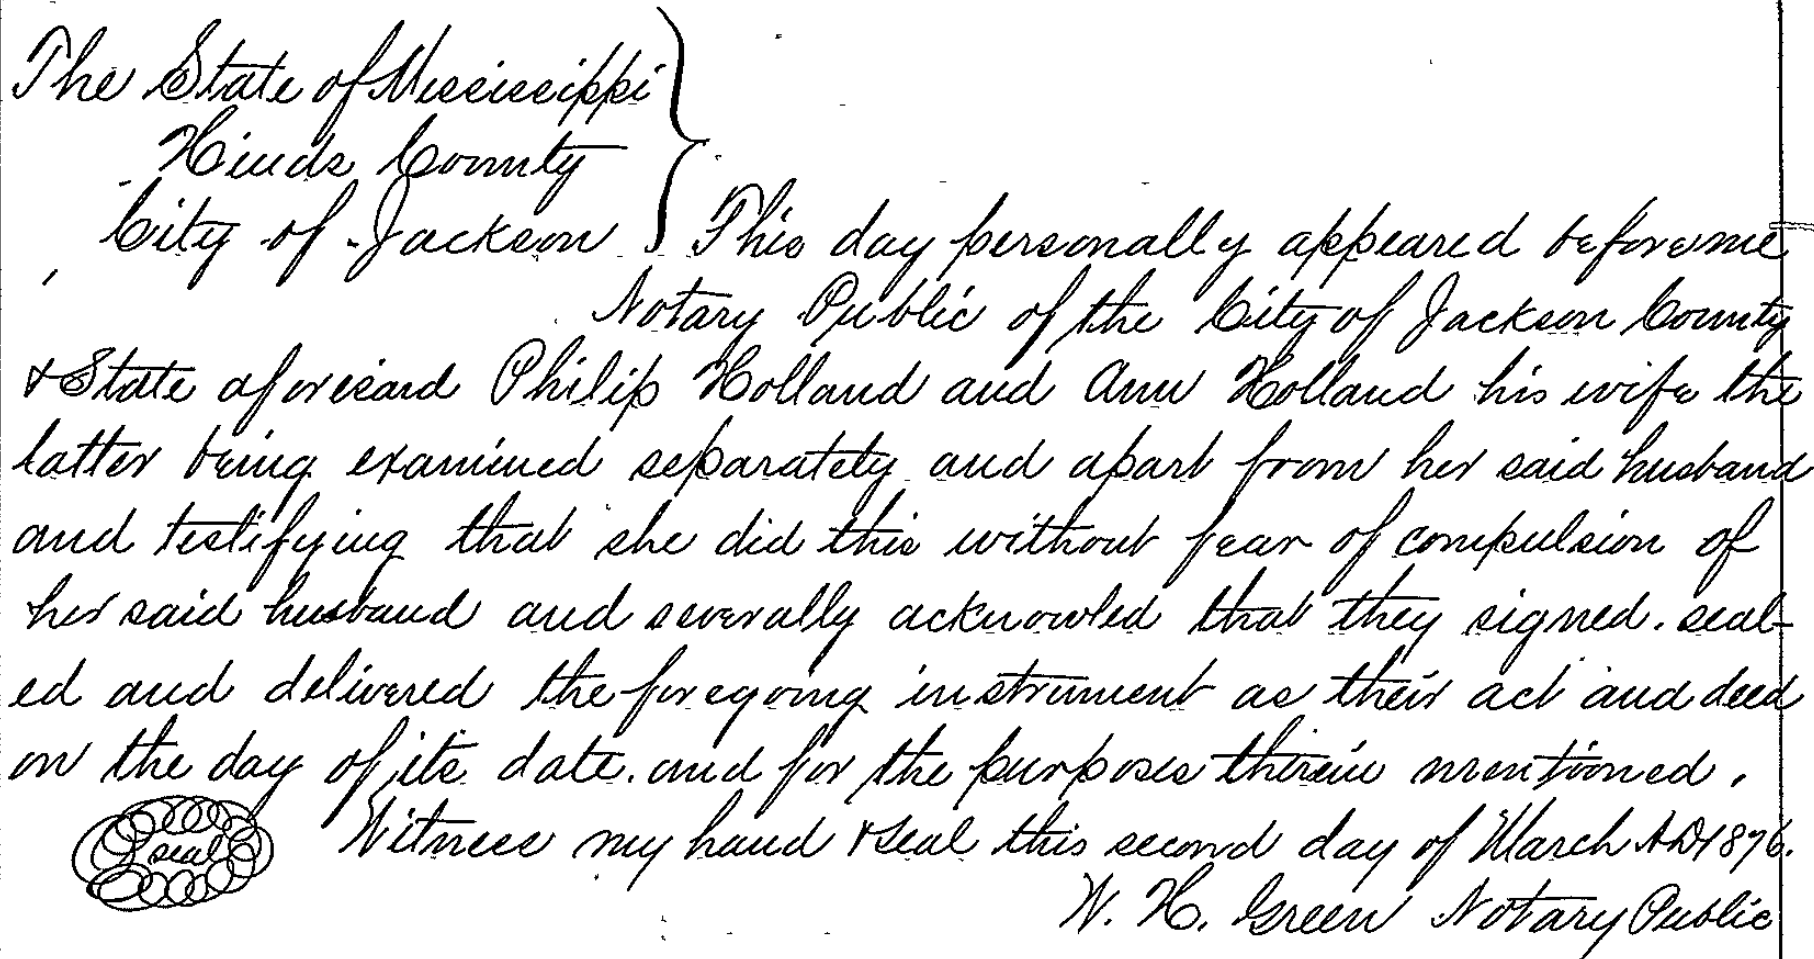 The State of Mississippi
Hinds County
City of Jackson } This day personally appeared before me
Notary Public of the City of Jackson County
& State aforesaid Philip Holland and Ann Holland his wife the
latter being examined separately and apart from her said husband
and testifying that she did this without fear of compulsion of
her said husband and severally acknowled that they signed. seal-
ed and delivered the foregoing instrument as their act and deed
on the day of its date. and for the purposes therein mentioned.
seal Witness my hand & seal this second day of March AD 1876.
W. H. Green Notary Public